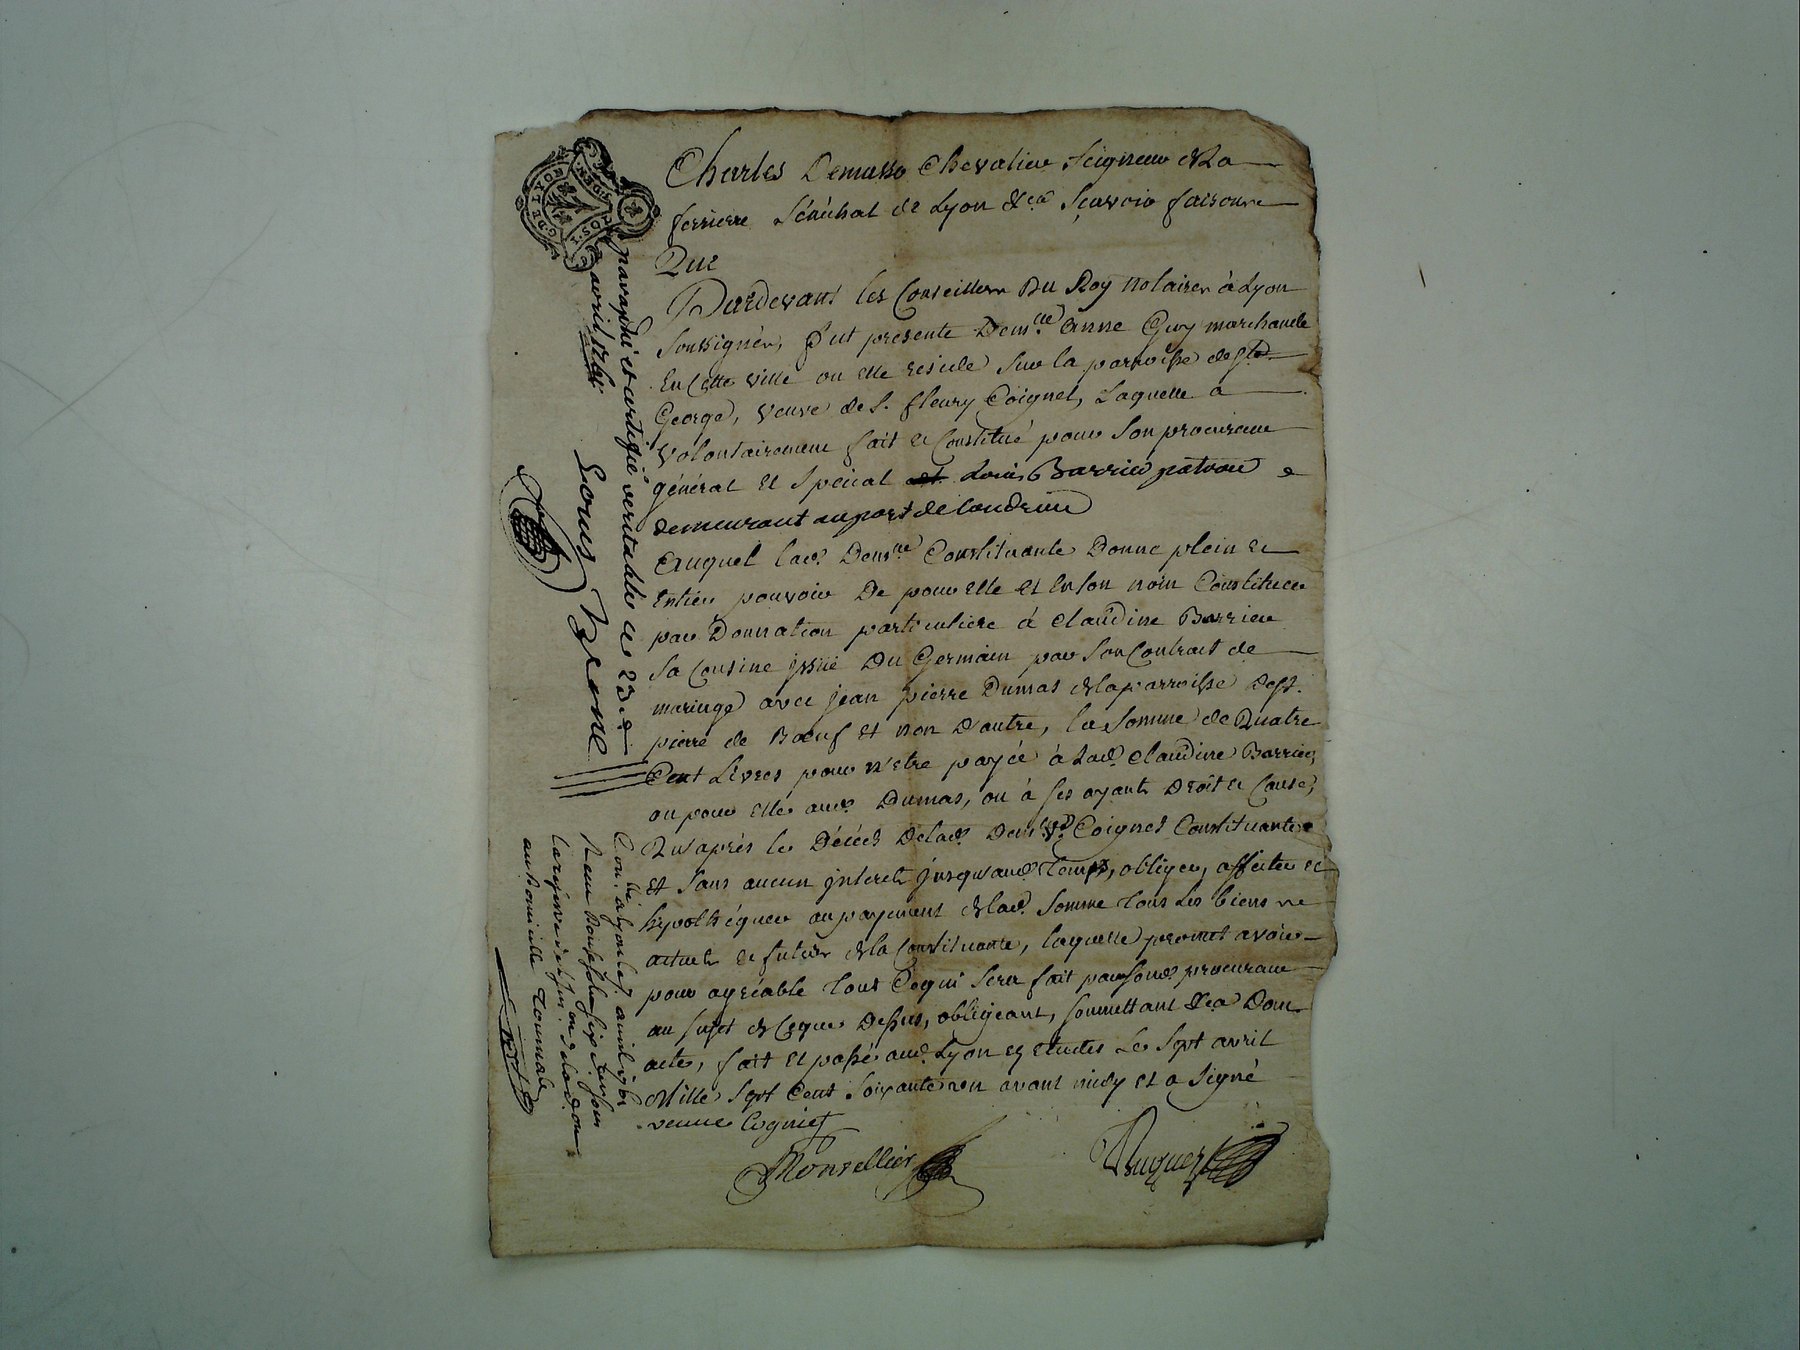 Charles Demasso Chevalier Seigneur de la
ferriere Sénéchal de Lyon &ca Sçavoir faisons
Que
Pardevant les Conseillers Du Roy Notaires à Lyon
Soussignés, fut presente Demlle Anne Guy marchande
En Cette ville ou elle reside Sur la parroisse de St
George, veuve de S. fleury Coignet, Laquelle a
Volontairement fait et Constitué pour Son procureur
général et Spécial Louis Barrieu patron
demeurant au port de Condrieu
Auquel lad. Demlle Constituante Donne plein et
Entier pouvoir De pour elle et En son nom Constituer
par Donnation particuliere à Claudine Barrieu
Sa Cousine issüe Du Germain par Son Contrait de
mariage avec jean pierre Dumas de la parroisse de St.
pierre de Bœuf et non D'autre, la Somme de Quatre
Cent Livres pour n'etre payée à Lad. Claudine Barrieu,
ou pour elle aud. Dumas, ou à ses ayants Droit et Cause,
Qu'après le Décéds De lad. Demlle Ve. Coignet Constituante
et Sans aucun jnterets jusqu'aud. tems, obliger, affecter et
hypothéquer au payement de lad. Somme tous Les biens
actuels et futurs de la Constituante, laquelle promet avoir
pour agréable tout Cequi Sera fait par Sond. procureur
au Sujet de Ceque Dessus, obligeant, Soumettant &ca Dont
acte, fait et passé aud. Lyon ez etudes Le Sept avril
Mille Sept Cent Soixante un avant midy et a Signé
veuve Cogniet
Monsellier
paraphé et certifié veritable ce 23e
avril 1761
Con.lle à Lyon le 7. avril 1761
au Domicille Tournale
G. DE LYON